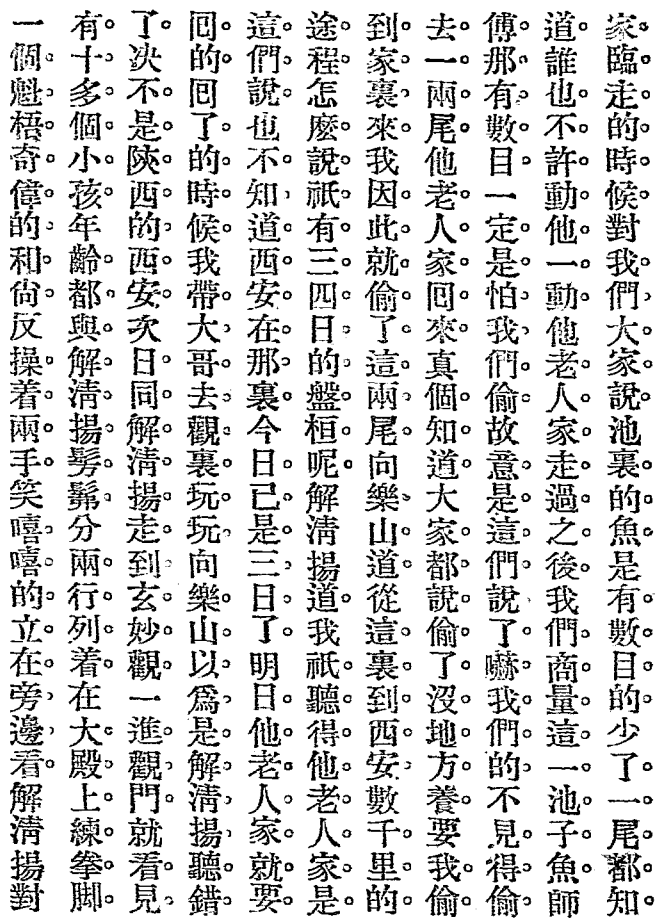 家臨走的時候對我們大家說池裏的魚是有數目的少了一尾都知
道誰也不許動他一動他老人家走過之後我們商量這一池子魚師
傅那有數目一定是怕我們偷故意是這們說了嚇我們的不見得偷
去一兩尾他老人家囘來真個知道大家都說偷了沒地方養要我偷
到家裏來我因此就偷了這兩尾向樂山道從這裏到西安數千里的
途程怎麽說祇有三四日的盤桓呢解清揚道我祇聽得他老人家是
這們說也不知道西安在那裏今日已是三日了明日他老人家就要
囘的囘了的時候我帶大哥去觀裏玩玩向樂山以爲是解清揚聽錯
了决不是陝西的西安次日同解清揚走到玄妙觀一進觀門就看見
有十多個小孩年齡都與解清揚髣髴分兩行列着在大殿上練拳脚
一個魁梧奇偉的和尙反操着兩手笑嘻嘻的立在旁邊看解清揚對